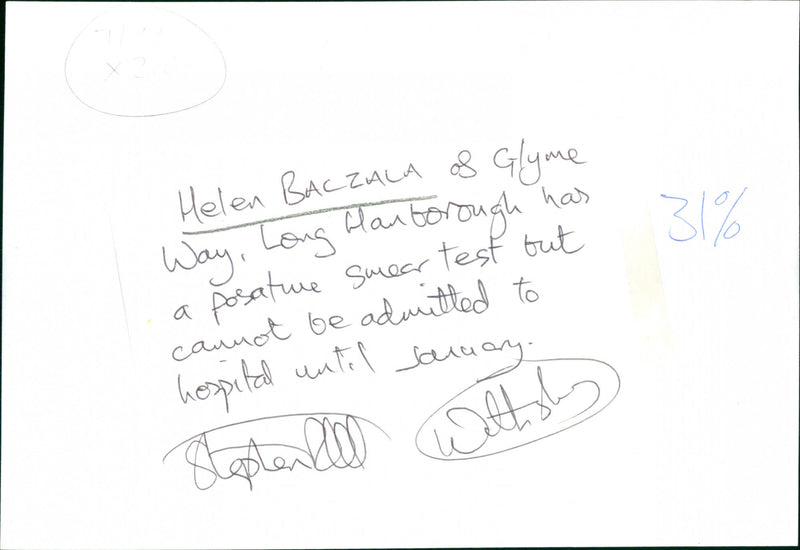 Helen BACZALA of Glyme
Way, Long Hanborough has
a posative smear test but
cannot be admitted to
hospital until January.
31%
Stephen